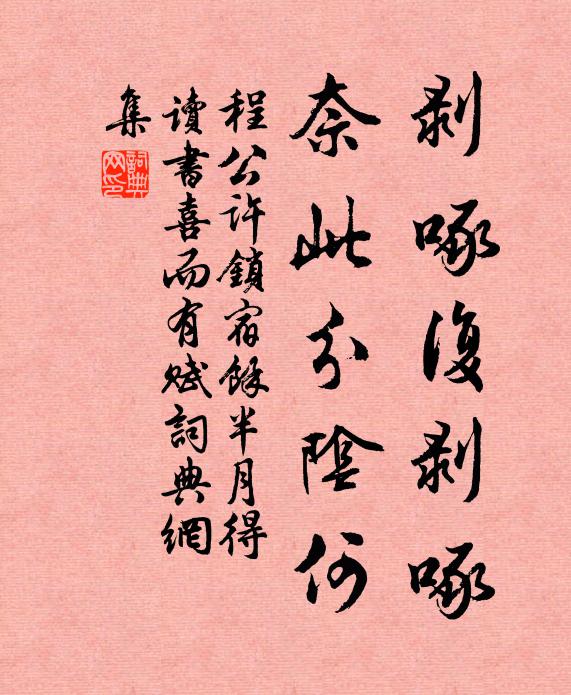 剥啄復剥啄
奈此分陰何
程公許鎖宿餘半月得
讀書喜而有賦詞典網
集
詞典網印